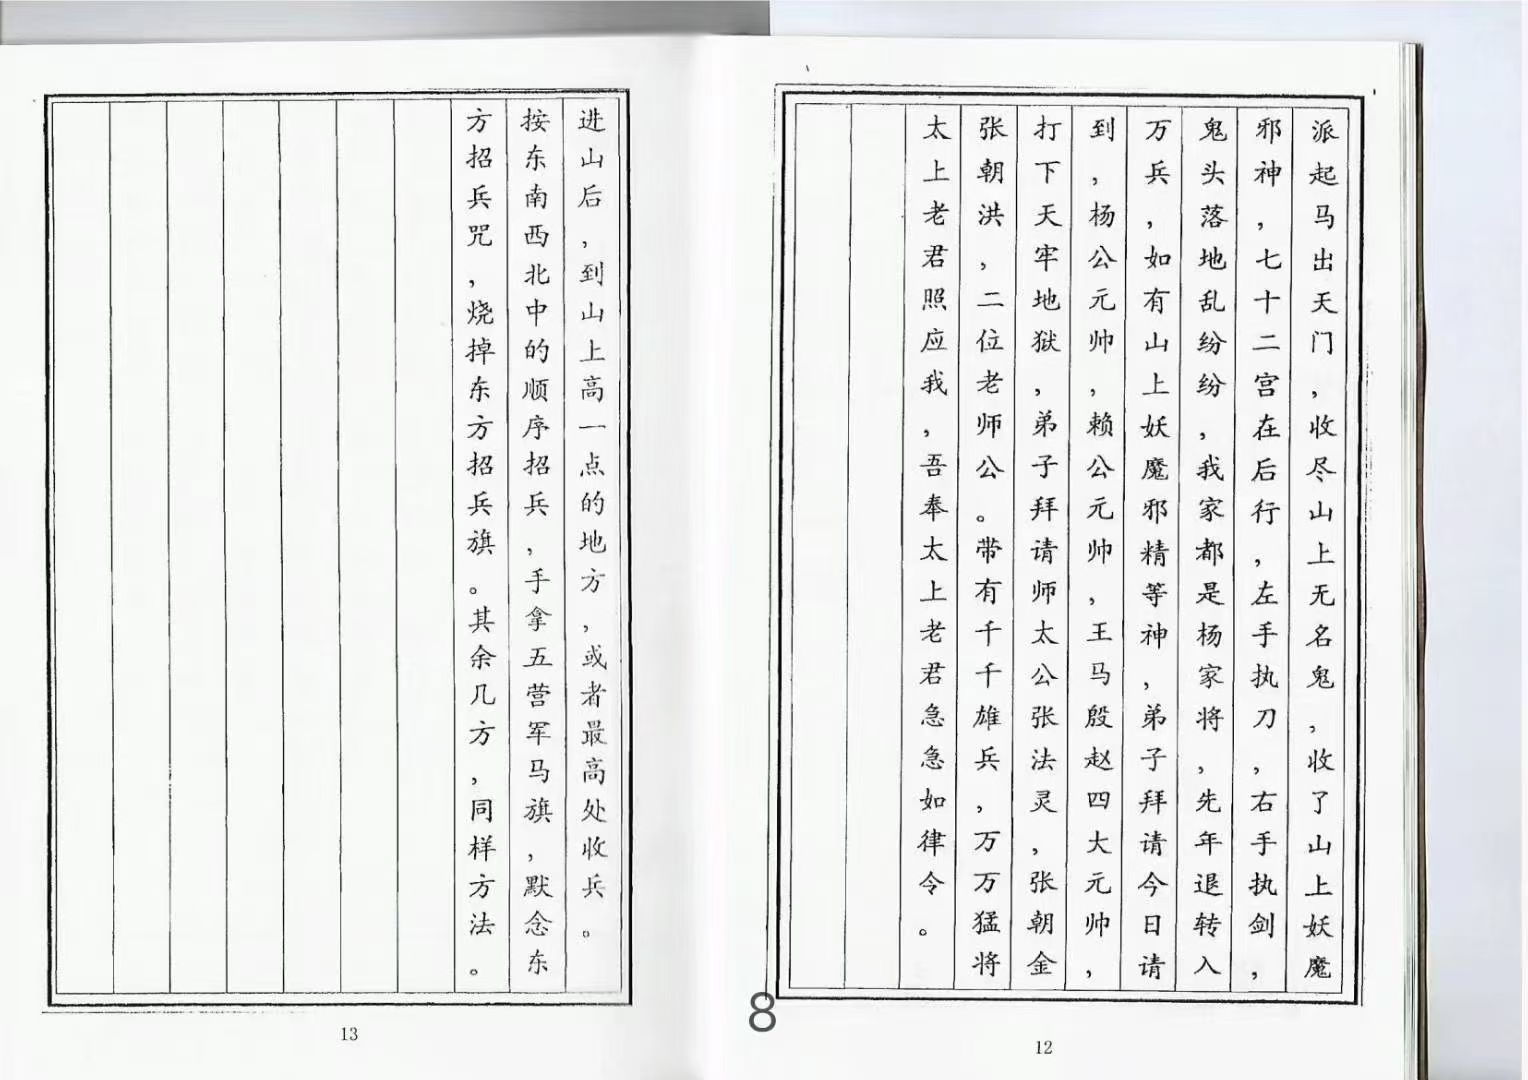 派起马出天门，收尽山上无名鬼，收了山上妖魔
邪神，七十二宫在后行，左手执刀，右手执剑，
鬼头落地乱纷纷，我家都是杨家将，先年退转入
万兵，如有山上妖魔邪精等神，弟子拜请今日请
到，杨公元帅，赖公元帅，王马殷赵四大元帅，
打下天牢地狱，弟子拜请师太公张法灵，张朝金
张朝洪，二位老师公。带有千千雄兵，万万猛将
太上老君照应我，吾奉太上老君急急如律令。
12
进山后，到山上高一点的地方，或者最高处收兵。
按东南西北中的顺序招兵，手拿五营军马旗，默念东
方招兵咒，烧掉东方招兵旗。其余几方，同样方法。
13
8